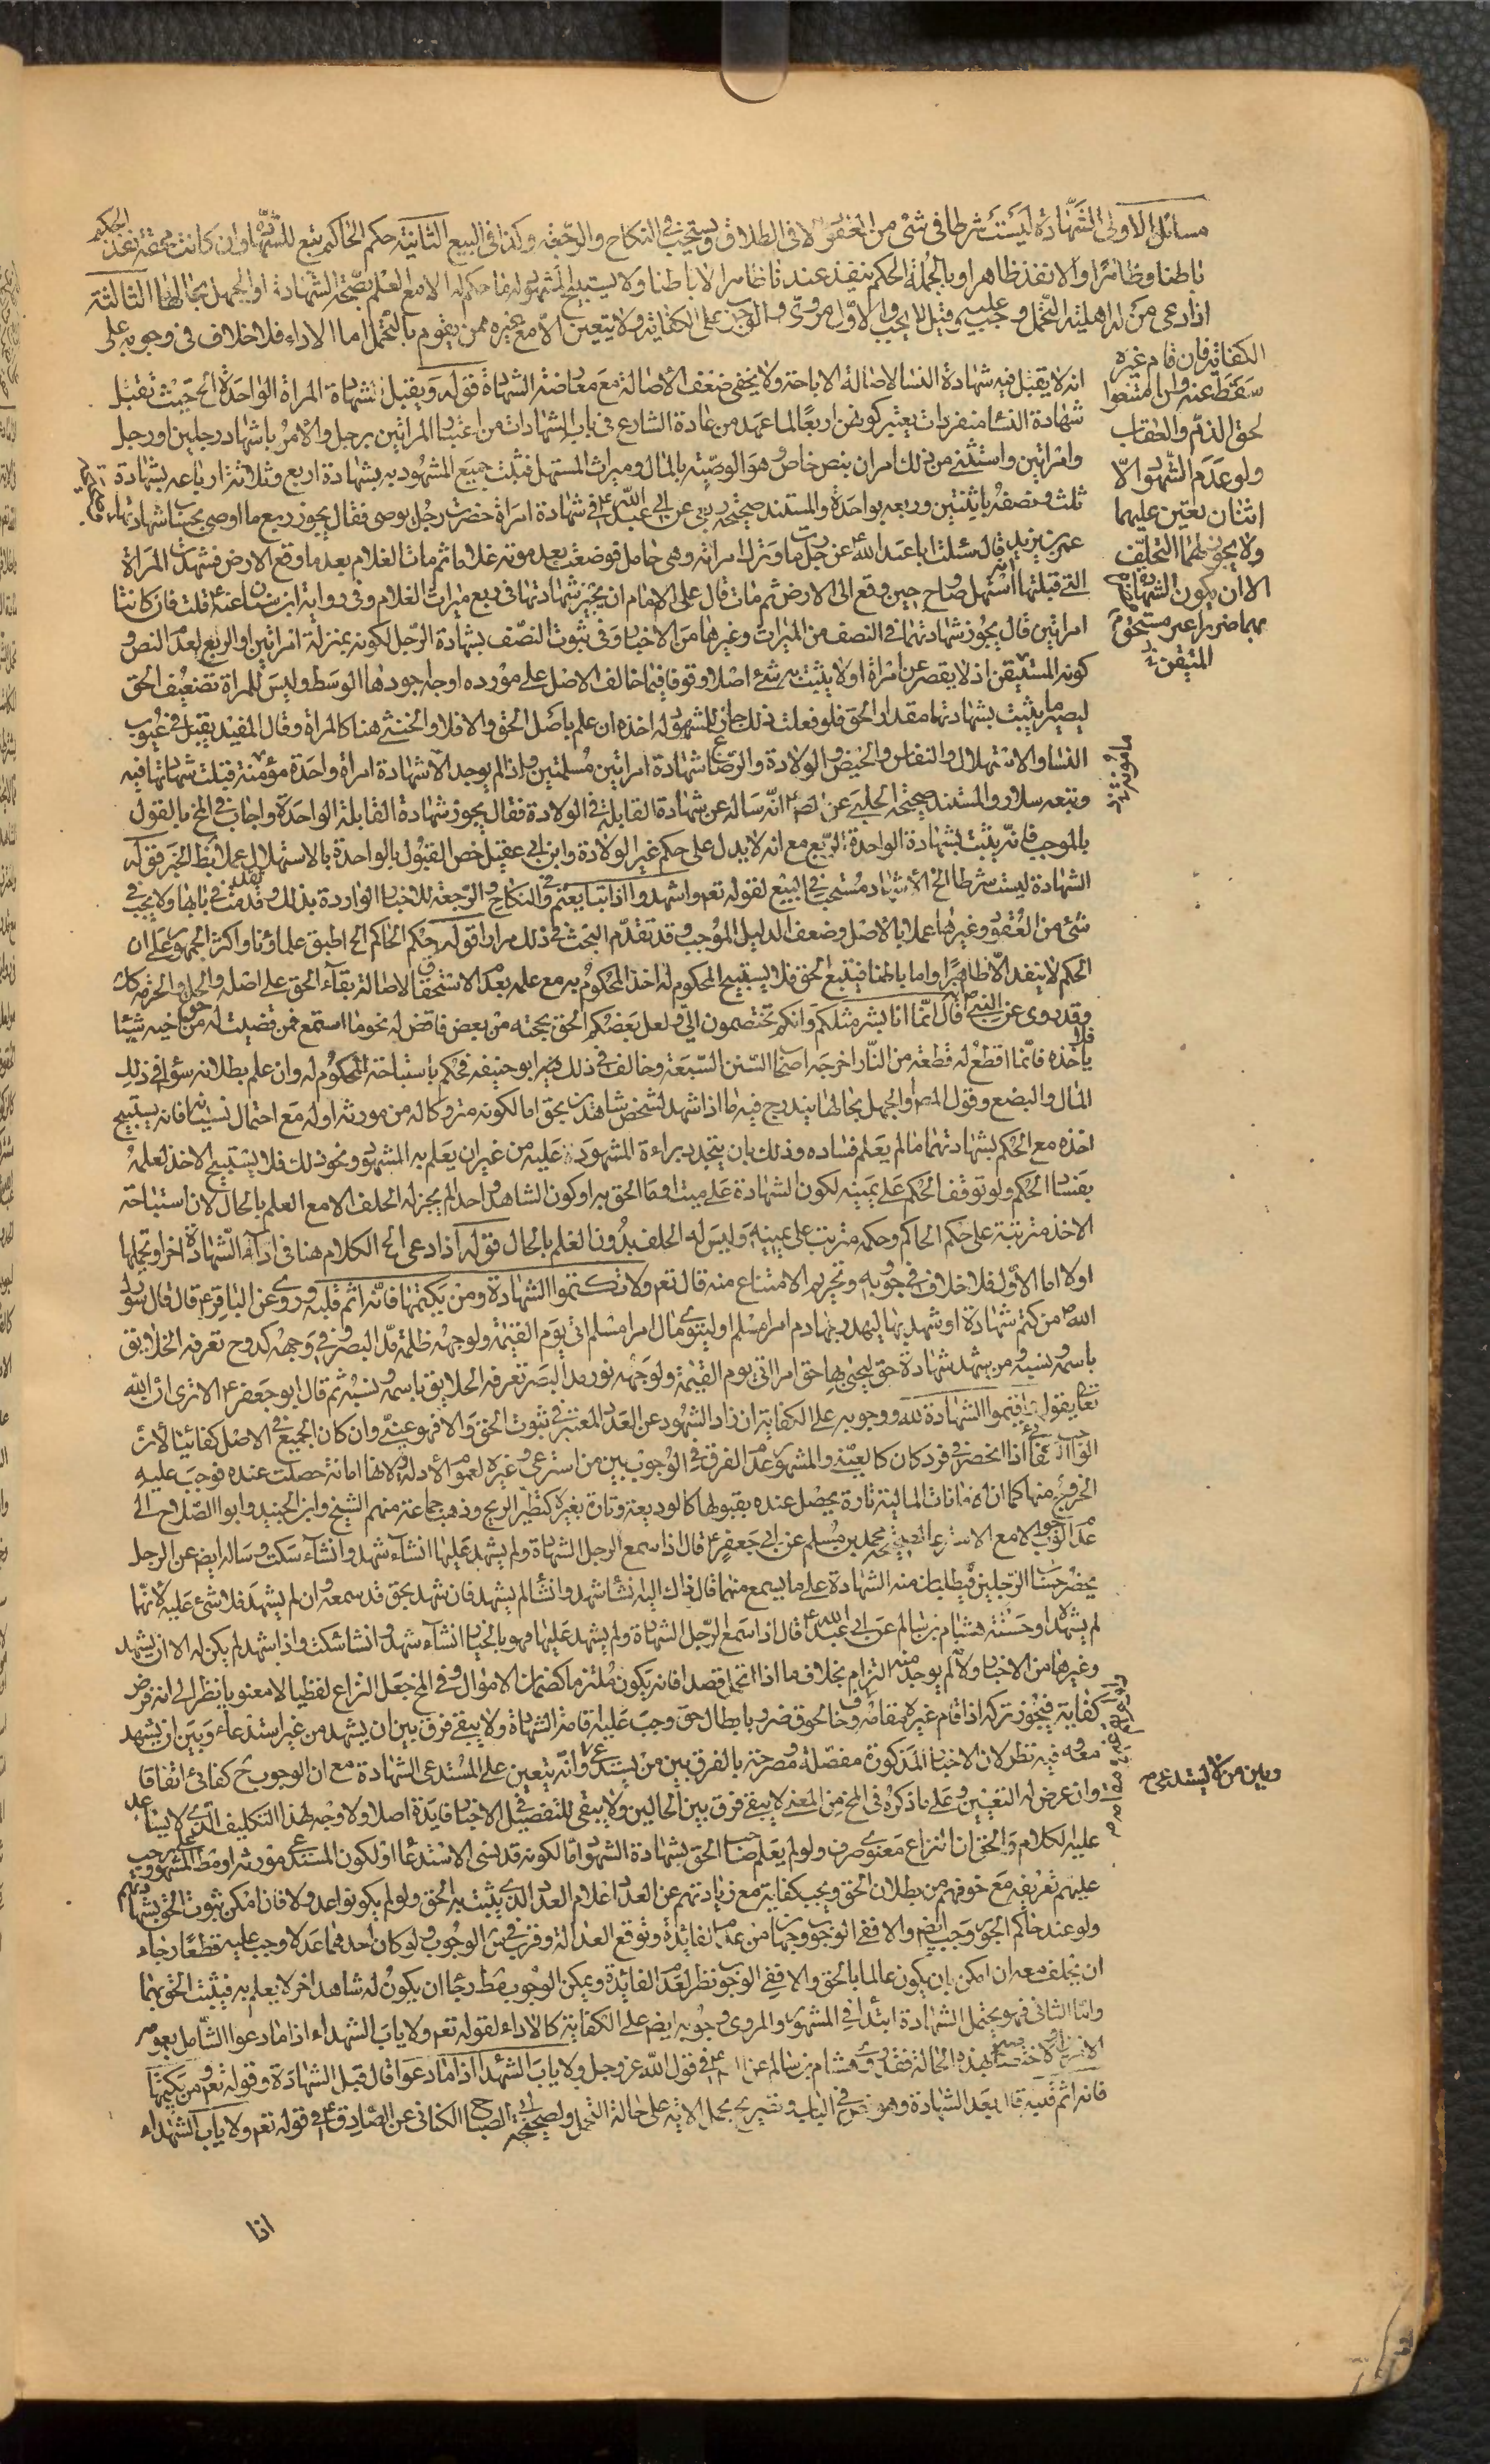 مسائل الاولى الشهادة ليست شرطا في شئ من العقود الا في الطلاق ويستحب في النكاح والرجعة وكذا في البيع الثانية حكم الحاكم تبع للشهادة فان كانت محقة نفذ الحكم
باطنا وظاهرا والا نفذ ظاهرا وبالجملة الحكم ينفذ عندنا ظاهرا لا باطنا ولا يستبيح المشهود له ما حكم له الا مع العلم بصحة الشهادة او الجهل بحالها الثالثة
اذا دعى من له اهلية التحمل وجب عليه وقيل لا يجب والاول مروى والوجوب على الكفاية ولا يتعين الا مع عدم غيره ممن يقوم بالتحمل اما الاداء فلا خلاف في وجوبه على
الكفاية فان قام غيره
سقط عنه ولو امتنعوا
لحق الذم والعقاب
ولو عدم الشهود الا
اثنان تعين عليهما
ولا يجوز لهما التخلف
الا ان يكون الشهادة
بهما ضررا غير مستحق
انه لا يقبل فيه شهادة النساء لاصالة الاباحة ولا يخفى ضعف الاصالة مع معارضة الشهادة قوله ويقبل شهادة المراة الواحدة الخ حيث تقبل
شهادة النساء منفردات يعتبر كونهن اربعا لما عهد من عادة الشارع في باب الشهادات من اعتبار المراتين برجل والامر باشهاد رجلين او رجل
وامراتين واستثنى من ذلك امران بنص خاص وهو الوصية بالمال وميراث المستهل فثبت جميع المشهود به بشهادة اربع وثلاثة ارباعه بشهادة
ثلث ونصفه باثنتين وربعه بواحدة والمستند صحيحة ربعي عن ابي عبد الله ع في شهادة امراة حضرت رجل يوصى فقال يجوز ربع ما اوصى بحساب شهادتها
عمر بن يزيد قال سئلت ابا عبد الله ع عن رجل مات وترك امراته وهي حامل فوضعت بعد موته غلاما ثم مات الغلام بعد ما وقع الى الارض فشهدت المراة
التي قبلتها انه استهل وصاح حين وقع الى الارض ثم مات قال على الامام ان يجيز شهادتها في ربع ميراث الغلام وفي رواية ابن سنان عنه ع قلت فان كانتا
امراتين قال يجوز شهادتهما في النصف من الميراث وغيرها من الاخبار وفي ثبوت النصف بشهادة الرجل لكونه بمنزلة امراتين او الربع لعدم النص و
كونه المستيقن اذ لا يقصر عن امراة او لا يثبت به شئ اصلا وقوفا فيما خالف الاصل على مورده اوجه اجودها الوسط وليس للمراة تضعيف الحق
ليصير ما يثبت بشهادتها مقدار الحق فلو فعلت ذلك جاز للمشهود له اخذه ان علم باصل الحق والا فلا والخنثى هنا كالمراة وقال المفيد يقبل في عيوب
النساء والاستهلال والنفاس والحيض والولادة والرضاع شهادة امراتين مسلمتين واذا لم يوجد الا شهادة امراة واحدة مؤمنة قبلت شهادتها فيه
وتبعه سلار والمستند صحيحة الحلبي عن انه ساله عن شهادة القابلة في الولادة فقال يجوز شهادة القابلة الواحدة واجاب في المخ بالقول
بالموجب فانه يثبت بشهادة الواحدة الربع مع انه لا يدل على حكم غير الولادة وابن ابي عقيل خص القبول بالواحدة بالاستهلال عملا بظ الخبر قوله
الشهادة ليست شرطا الخ الاشهاد مستحب في البيع لقوله تعم واشهدوا اذا تبايعتم وفي النكاح والرجعة للاخبار الواردة بذلك وقد تقدمت في بابها ولا يجب في
شئ من العقود وغيرها عملا بالاصل وضعف الدليل الموجب وقد تقدم البحث في ذلك مرارا قوله حكم الحاكم الخ اطبق علماؤنا واكثر الجمهور على ان
الحكم لا ينفذ الا ظاهرا واما باطنا فيتبع الحق فلا يستبيح المحكوم له اخذ المحكوم به مع علمه بعدم الاستحقاق لاصالة بقاء الحق على اصله والحل والحرمة كك
وقد روى عن النبي ص قال انما انا بشر مثلكم وانكم تختصمون الي ولعل بعضكم الحن بحجته من بعض فاقض له نحو ما استمع فمن قضيت له من حق اخيه شيئا
فلا ياخذه فانما اقطع له قطعة من النار اخرجه اصحاب السنن السبعة وخالف في ذلك ابو حنيفه فحكم باستباحة المحكوم له وان علم بطلانه سواء في ذلك
المال والبضع وقول المص والجهل بحالها يندرج فيه ما اذا شهد لشخص شاهدان بحق اما لكونه متروكا له من مورثه او له مع احتمال نسيانه فانه يستبيح
اخذه مع الحكم بشهادتهما ما لم يعلم فساده وذلك بان يتجدد براءة المشهود عليه من غير ان يعلم به المشهود ونحو ذلك فلا يستبيح الاخذ لعلمه
بفساد الحكم ولو توقف الحكم على يمينه لكون الشهادة على ميت او الحق به او كون الشاهد واحدا لم يجز له الحلف الا مع العلم بالحال لان استباحة
الاخذ مترتبة على حكم الحاكم وحكمه مترتب على يمينه وليس له الحلف بدون العلم بالحال قوله اذا دعى الخ الكلام هنا في اداء الشهادة اخرا وتحملها
اولا اما الاول فلا خلاف في وجوبه وتحريم الامتناع منه قال تعم ولا تكتموا الشهادة ومن يكتمها فانه اثم قلبه وروى عن الباقر ع قال قال رسول
الله ص من كتم شهادة او شهد بها ليهدر بها دم امرء مسلم او ليتوى مال امرء مسلم اتى يوم القيمة ولوجهه ظلمة مد البصر وفي وجهه كدوح تعرفه الخلايق
باسمه ونسبه ومن شهد شهادة حق ليحيي بها حق امرء اتى يوم القيمة ولوجهه نور مد البصر تعرفه الخلايق باسمه ونسبه ثم قال ابو جعفر ع الا ترى ان الله
تعالى يقول واقيموا الشهادة لله ووجوبه على الكفاية ان زاد الشهود عن العدد المعتبر في ثبوت الحق والا فهو عيني وان كان الجميع في الاصل كفائيا لان
الواجب الكفائي اذا انحصر في فرد كان كالعيني والمشهور عدم الفرق في الوجوب بين من استرعى وغيره لعموم الادلة ولانها امانة حصلت عنده فوجب عليه
الخروج منها كما ان الامانات المالية تارة يحصل عنده بقبولها كالوديعة وتارة بغيره كتطير الريح وذهب جماعة منهم الشيخ وابن الجنيد وابو الصلاح الى
عدم الوجوب الا مع الاسترعاء لصحيحة محمد بن مسلم عن ابي جعفر ع قال اذا سمع الرجل الشهادة ولم يشهد عليها ان شاء شهد وان شاء سكت وساله ايضا عن الرجل
يحضر حساب الرجلين فيطلبان منه الشهادة على ما يسمع منهما قال ذاك اليه ان شاء شهد وان شاء لم يشهد فان شهد بحق قد سمعه وان لم يشهد فلا شئ عليه لانهما
لم يشهداه وحسنة هشام بن سالم عن ابي عبد الله ع قال اذا سمع الرجل الشهادة ولم يشهد عليها فهو بالخيار ان شاء شهد وان شاء سكت واذا شهد لم يكن له الا ان يشهد
وغيرها من الاخبار ولانه لم يوجد منه التزام بخلاف ما اذا تحمل قصدا فانه يكون ملتزما كضمان الاموال وفي المخ جعل النزاع لفظيا لا معنويا نظرا الى انه فرض
كفاية فيجوز تركه اذا قام غيره مقامه ولو خاف لحوق ضرر بابطال حق وجب عليه اقامة الشهادة ولا يبقى فرق بين ان يشهد من غير استدعاء وبين ان يشهد
معه وفيه نظر لان الاخبار المذكورة مفصلة ومصرحة بالفرق بين من يستدعى وانه يتعين على المستدعى الشهادة مع ان الوجوب ح كفائي اتفاقا
وبين من لا يستدعى
وان عرض له التعيين وعلى ما ذكره في المخ من المعنى لا يبقى فرق بين الحالين ولا يبقى للتفصيل في الاخبار فايدة اصلا ولا وجه لهذا التكليف الذي لا يساعد
عليه الكلام والحق ان النزاع معنوي صرف ولو لم يعلم صاحب الحق بشهادة الشهود اما لكونه قد نسى الاستدعاء او لكون المستدعى مورثه او مط المشهود وجب
عليهم تعريفه مع خوفهم من بطلان الحق ويجب كفاية مع زيادتهم عن العدد اعلام العدد الذي يثبت به الحق ولو لم يكونوا عدولا فان امكن ثبوت الحق بشهادتهم
ولو عند حاكم الجور وجب ايضا والا ففي الوجوب وجهان من عدم الفائدة وتوقع العدالة وقرب في س الوجوب ولو كان احدهما عدلا وجب عليه قطعا رجاء
ان يحلف معه ان امكن بان يكون عالما بالحق والا ففي الوجوب نظر لعدم الفائدة ويمكن الوجوب مط رجاء ان يكون له شاهد اخر لا يعلم به فيثبت الحق بهما
واما الثاني فهو تحمل الشهادة ابتداء في المشهور والمروى وجوبه ايضا على الكفاية كالاداء لقوله تعم ولا ياب الشهداء اذا ما دعوا الشامل بعمومه
بهذه الحالة فقد روى هشام بن سالم عن في قول الله عز وجل ولا ياب الشهداء اذا ما دعوا قال قبل الشهادة وقوله تعم ومن يكتمها
فانه اثم قلبه قال بعد الشهادة وهو نص في الباب وتصريح بحمل الاية على حالة التحمل ولصحيحة ابي الصباح الكناني عن الصادق ع في قوله تعم ولا ياب الشهداء
اذا